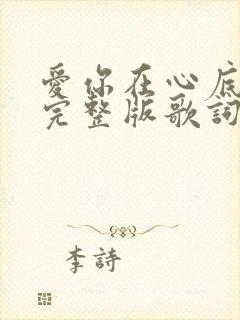 愛你在心底
完整版歌詞
李詩